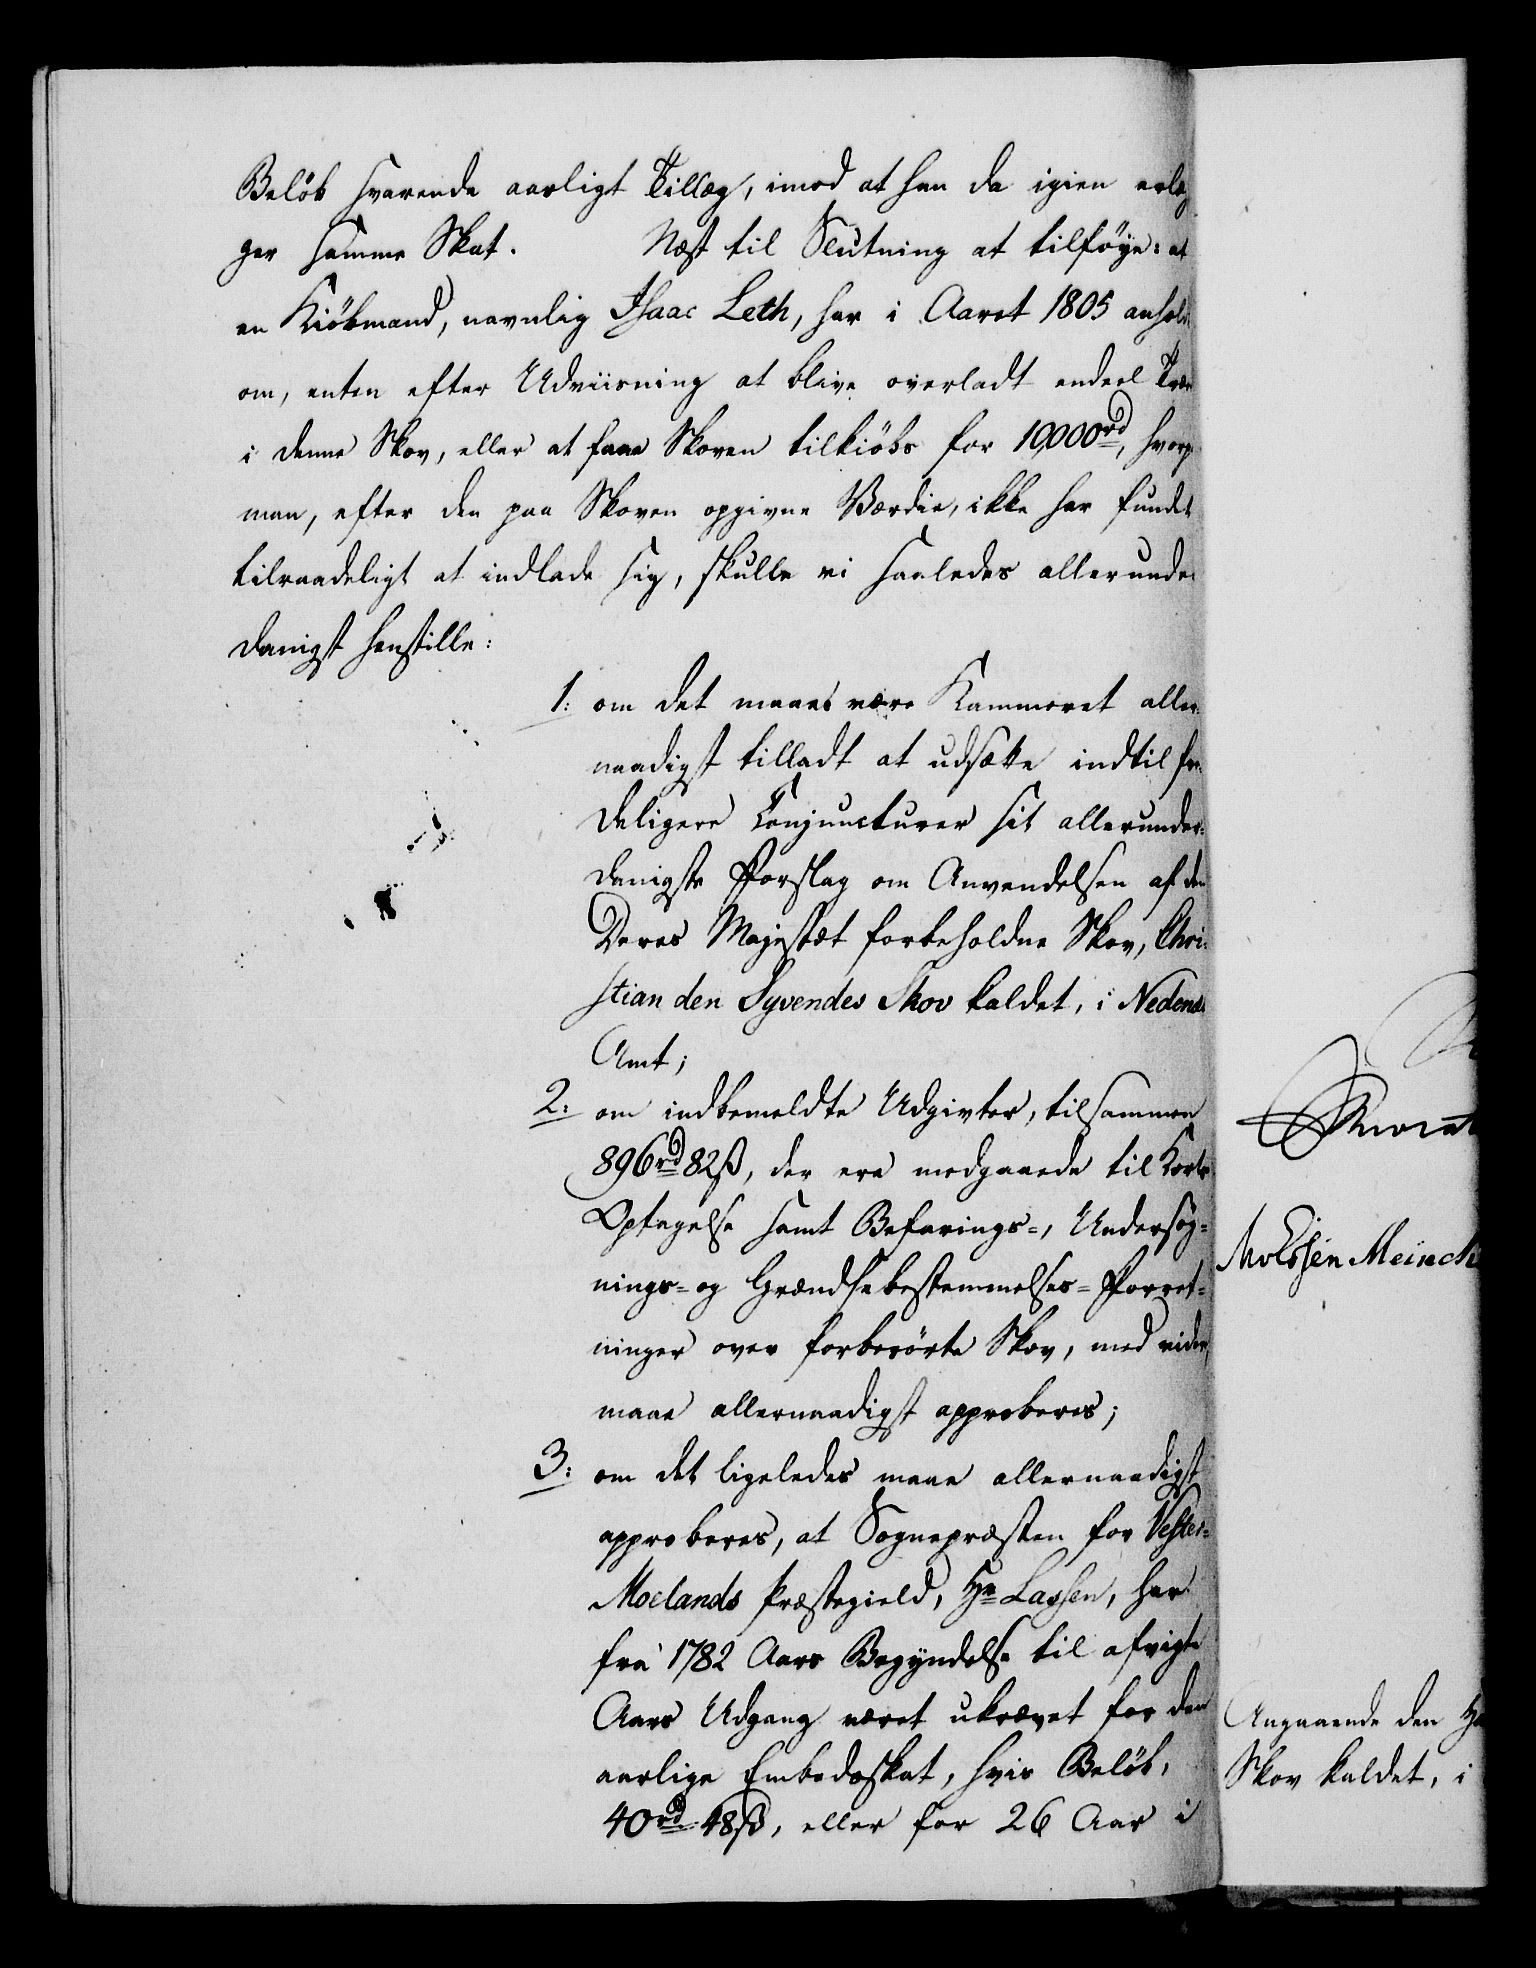 Beløb svarende aarligt Tillæg, imod at han da igien erlæg
ger samme Skat. Næst til Slutning at tilføye: at
en Kiøbmand, navnlig Isaac Leth, har i Aaret 1805 anhold
om, enten efter Udviisning at blive overladt endeel Træer
i denne Skov, eller at faae Skoven tilkiøbs for 10,000rd, hvorp
man, efter den paa Skoven opgivne Værdie, ikke har fundet
tilraadeligt at indlade sig, skulle vi saaledes allerunder
danigst henstille:
1: om det maatte være Kammeret aller-
naadigst tilladt at udsætte indtil for-
deligere Conjuncturer sit allerunder-
danigste Forslag om Anvendelsen af den
Deres Majestæt forbeholdne Skov, Chri-
stian den Syvendes Skov kaldet, i Nedenæs
Amt;
2: om indbemeldte Udgivter, tilsammen
896rd 82ß, der ere medgaaede til Korts
Optagelse samt Befarings-, Undersøg-
nings- og Grændsebestemmelses-Forret-
ninger over forberørte Skov, med videre,
maae allernaadigst approberes;
3: om det ligeledes maae allernaadigst
approberes, at Sognepræsten for Vester-
Moelands Præstegield, Hr Lassen, har
fra 1782 Aars Begyndelse til afvigte
Aars Udgang været ukrævet for den
aarlige Embedsskat, hvis Beløb,
40rd 48ß, eller for 26 Aar i
Meinck
Angaaende den
Skov kaldet, i